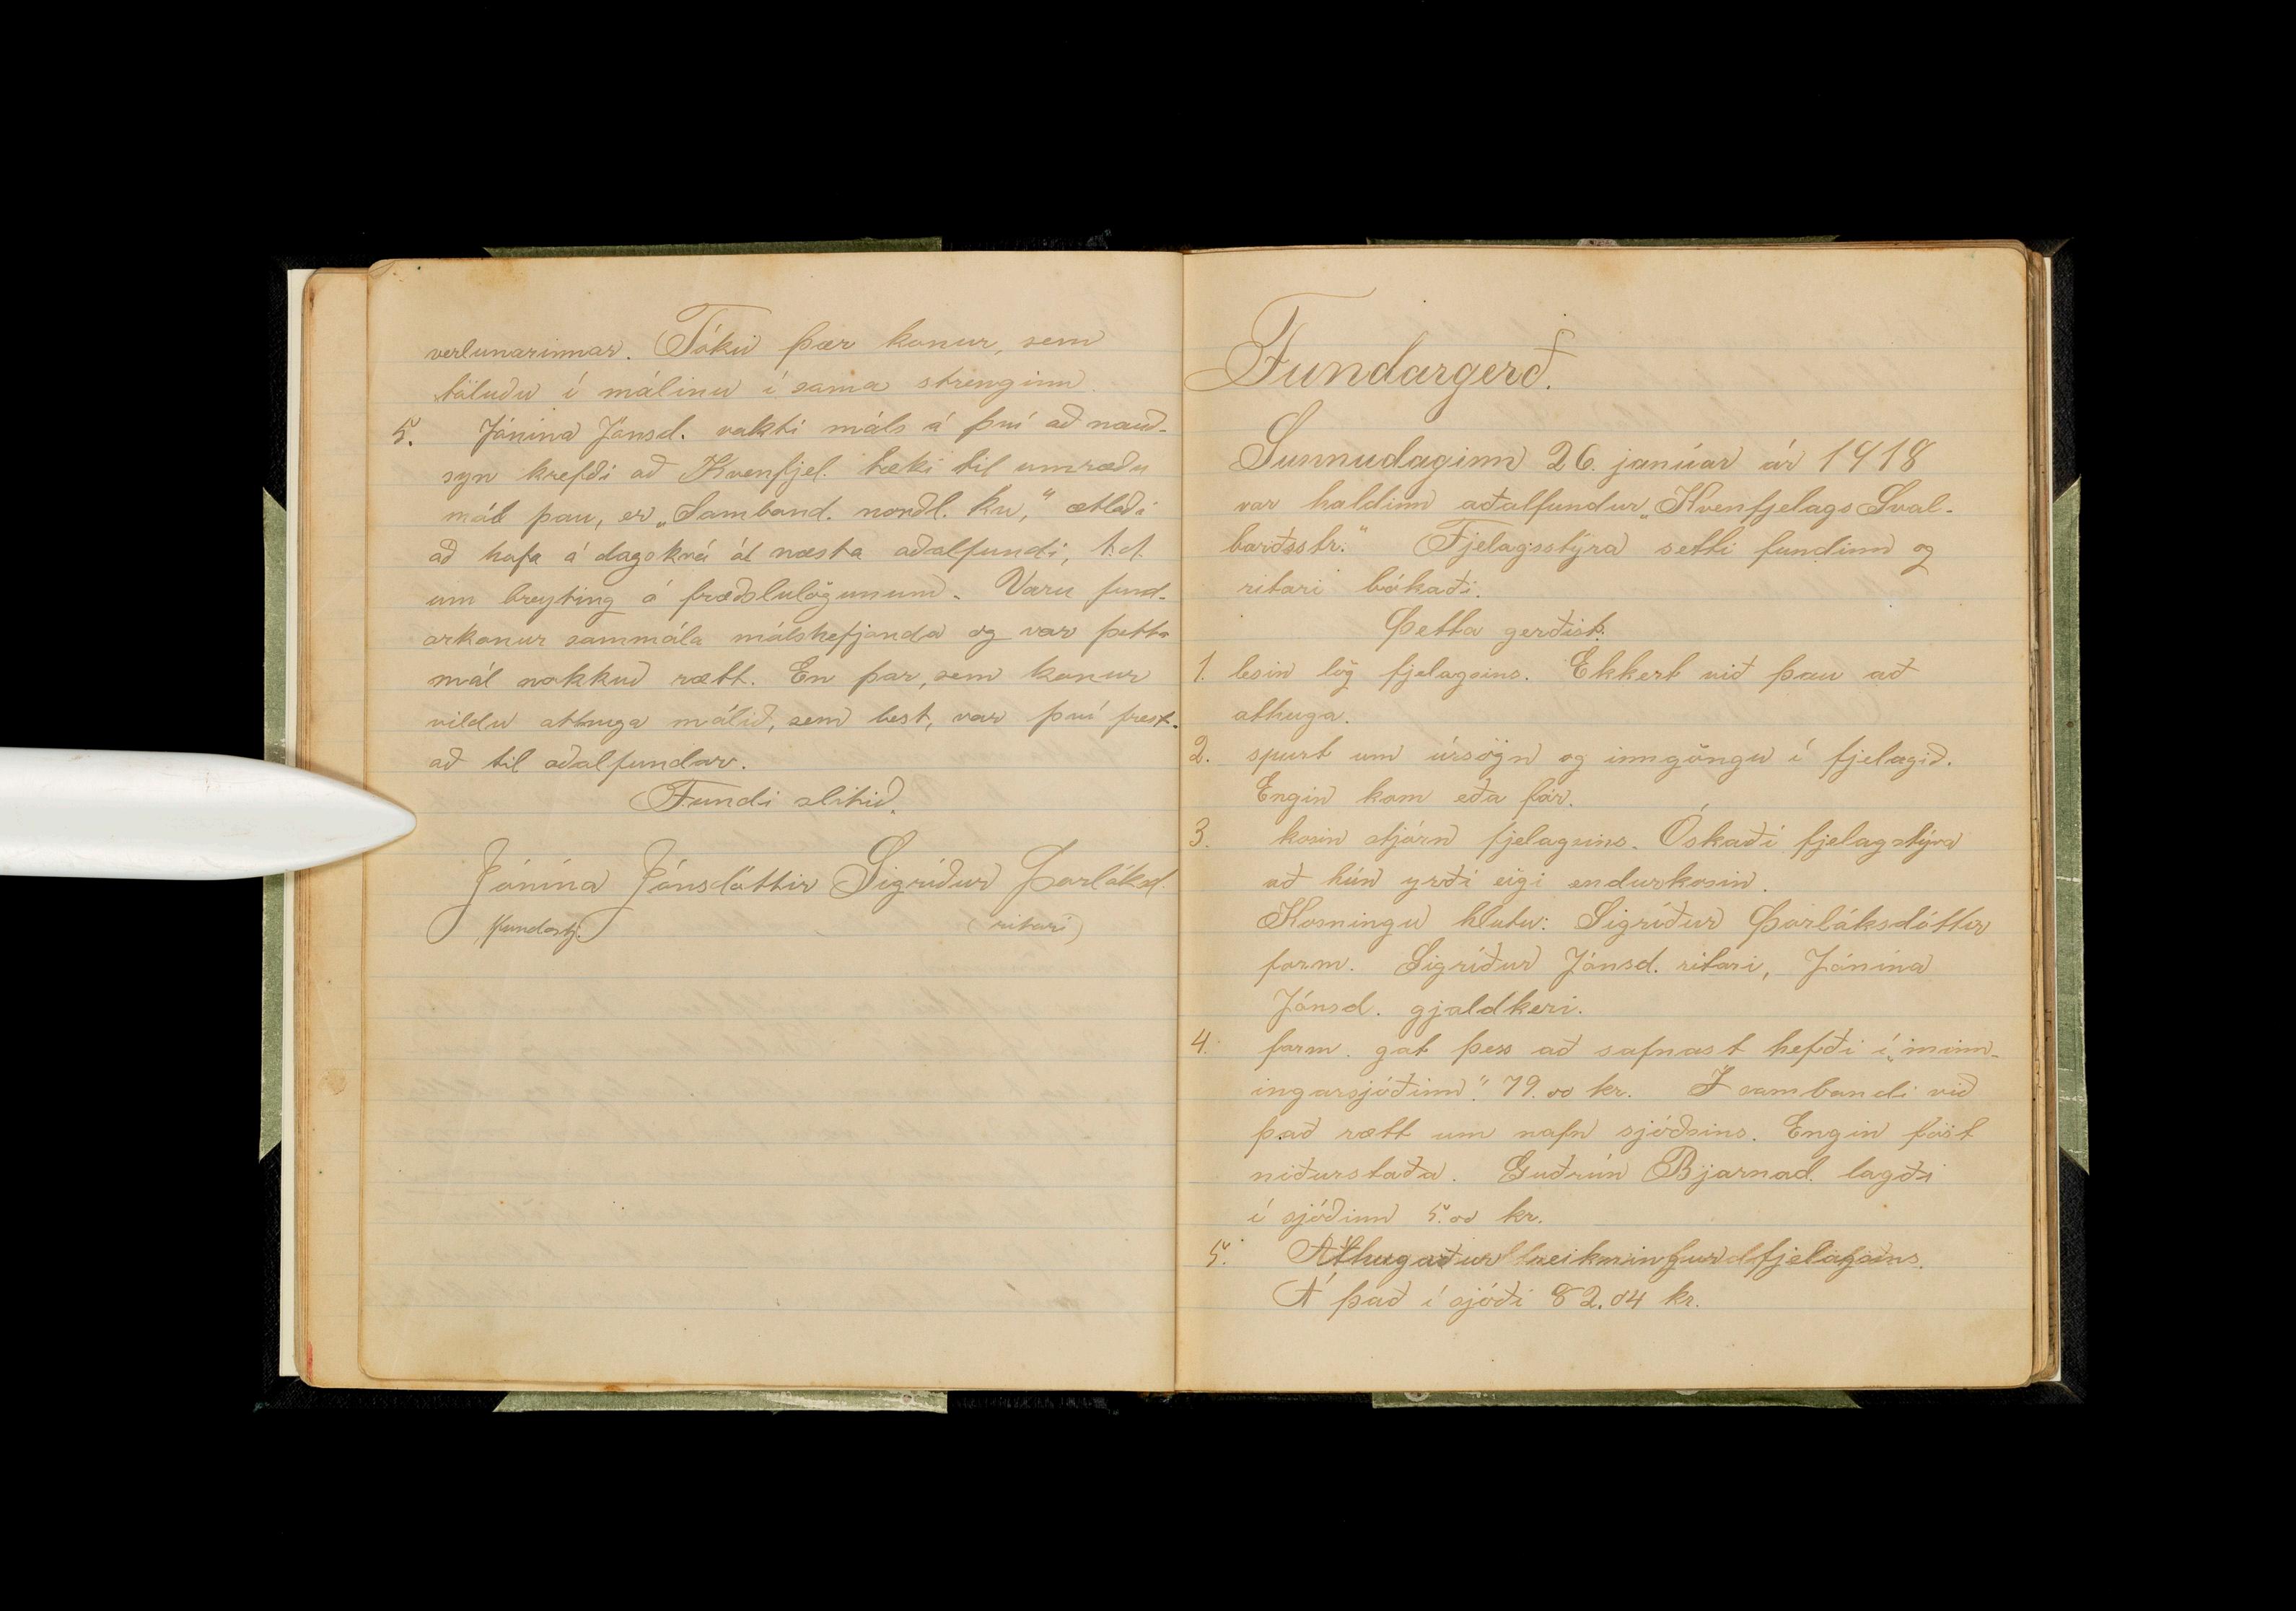 verlunarinnar. Tóku þær konur, sem
töluðu í málinu í sama strenginn.
5. Jónína Jónsd. vakti máls á því að nauð-
syn krefði að Kvenfjel. tæki til umræðu
mál þau, er „Samband. norðl. kv," ætlaði
að hafa á dagskrá át næsta aðalfundi, t.d.
um breyting á fræðslulögunum. Varu fund-
arkonur sammála málshefjanda og var þetta
mál nokkuð rætt. En þar, sem konur
vildu athuga málið, sem best, var því frest-
að til aðalfundar.
Fundi slitið.
Jónína Jónsdóttir Sigríður Þorláksd.
fundarstj. (ritari)
Fundargerð.
Sunnudaginn 26. janúar ár 1918
var haldinn aðalfundur „Kvenfjelags Sval-
barðsstr." Fjelagsstýra setti fundinn og
ritari bókaði.
Þetta gerðist:
1. lesin lög fjelagsins. Ekkert við þau að
athuga.
2. spurt um úrsögn og inngöngu í fjelagið.
Engin kom eða fór.
3. kosin stjórn fjelagsins. Óskaði fjelagstýra
að hún yrði eigi endurkosin.
Kosningu hlutu: Sigríður Þorláksdóttir
form. Sigríður Jónsd. ritari, Jónína
Jónsd. gjaldkeri.
4. form. gat þess að safnast hefði í „minn-
ingarsjóðinn". 79.00 kr. Í sambandi við
það rætt um nafn sjóðsins. Engin föst
niðurstaða. Guðrún Bjarnad. lagði
í sjóðinn 5.00 kr.
5. Athugaður reikningur fjelagsins.
Á það í sjóði 82.04 kr.